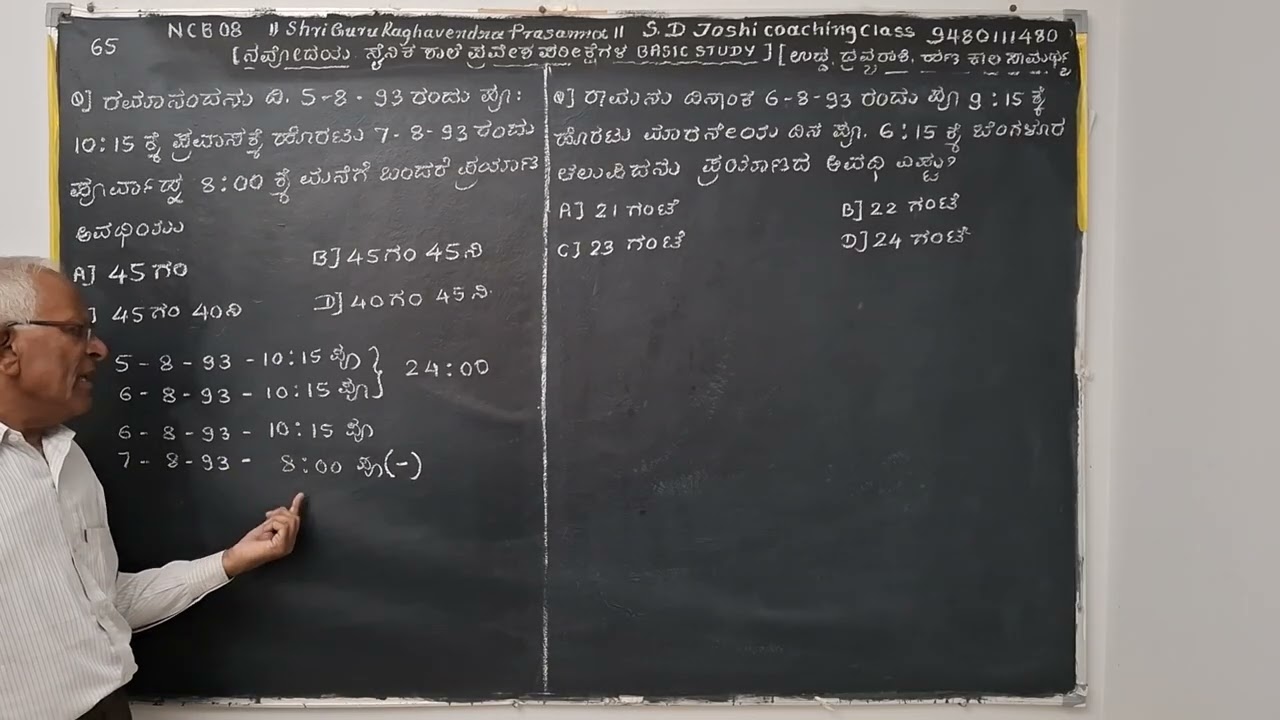 65
NCB 08 || Shri Guru Raghavendra Prasanna || S. D Joshi coaching Class 9480111480
[ನವೋದಯ ಸೈನಿಕ ಶಾಲೆ ಪ್ರವೇಶ ಪರೀಕ್ಷೆಗಳ BASIC STUDY] [ಉದ್ದ, ದ್ರವ್ಯರಾಶಿ, ಹಣ ಕಾಲ ಸಾಮರ್ಥ್ಯ
Q] ರಮಾನಂದನು ದಿ. 5-8-93 ರಂದು ಪೂ:
10:15 ಕ್ಕೆ ಪ್ರವಾಸಕ್ಕೆ ಹೊರಟು 7-8-93 ರಂದು
ಪೂರ್ವಾಹ್ನ 8:00 ಕ್ಕೆ ಮನೆಗೆ ಬಂದರೆ ಪ್ರಯಾಣ
ಅವಧಿಯು
A] 45 ಗಂ
B] 45 ಗಂ 45 ನಿ
] 45 ಗಂ 40 ನಿ
D] 40 ಗಂ 45 ನಿ.
5-8-93 - 10:15 ಪೂ } 24:00
6-8-93 - 10:15 ಪೂ
6-8-93 - 10:15 ಪೂ
7-8-93 - 8:00 ಪೂ (-)
Q] ರಾಮನು ದಿನಾಂಕ 6-8-93 ರಂದು ಪೂ 9:15 ಕ್ಕೆ
ಹೊರಟು ಮಾರನೇಯ ದಿನ ಪೂ. 6:15 ಕ್ಕೆ ಬೆಂಗಳೂರ
ತಲುಪಿದನು ಪ್ರಯಾಣದ ಅವಧಿ ಎಷ್ಟು?
A] 21 ಗಂಟೆ
B] 22 ಗಂಟೆ
C] 23 ಗಂಟೆ
D] 24 ಗಂಟೆ